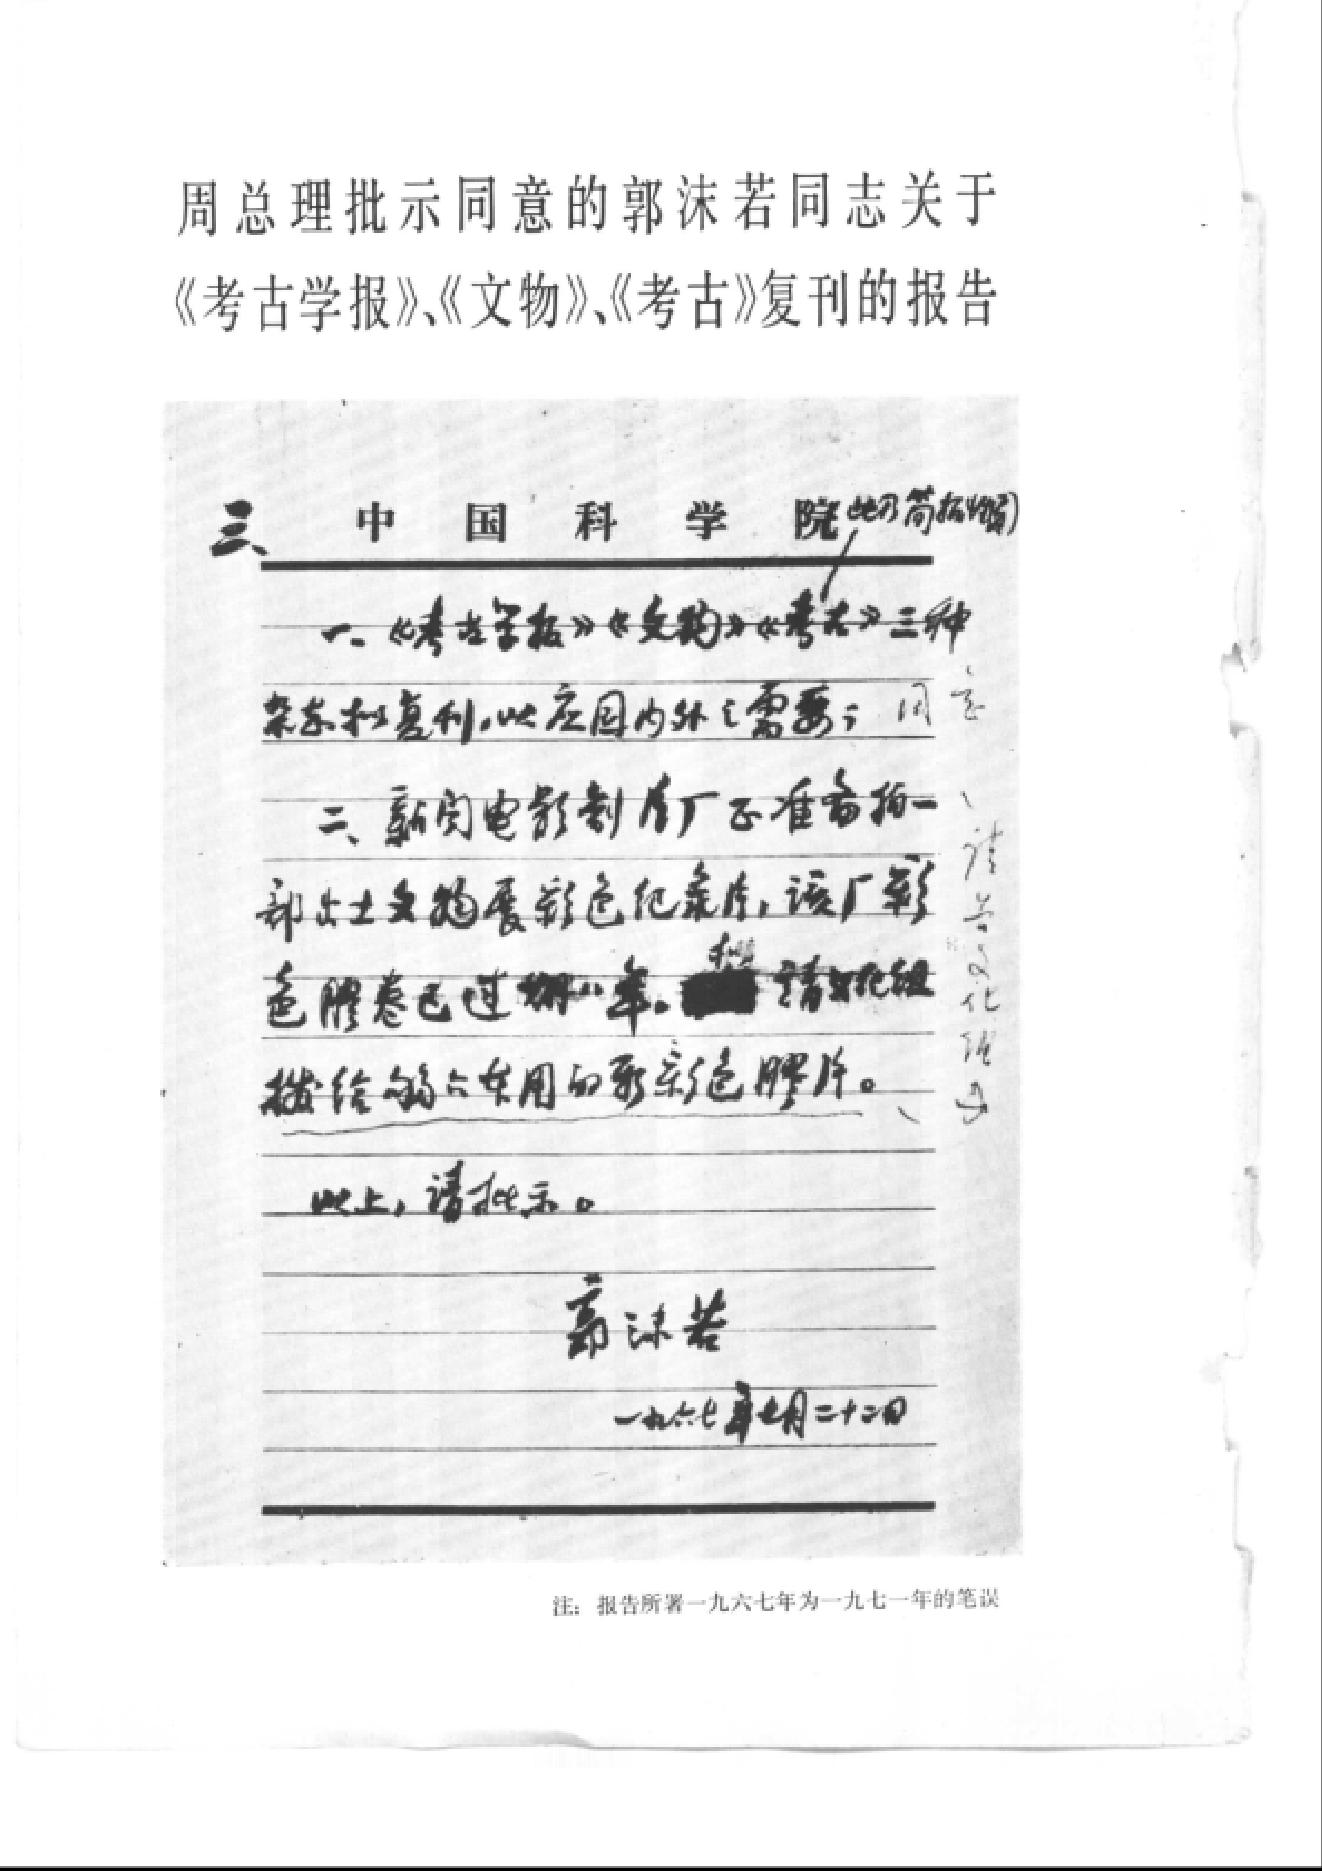 周总理批示同意的郭沫若同志关于
《考古学报》、《文物》、《考古》复刊的报告
三、
中国科学院
一、《考古学报》《文物》《考古》三种
杂志拟复刊，以应国内外之需要；
同意
二、新闻电影制片厂正准备拍一
部出土文物展彩色纪录片，该厂彩
色胶卷已过期八年。请文化组
拨给够六本用的新彩色胶片。
此上，请批示。
郭沫若
一九六七年七月二十二日
注：报告所署一九六七年为一九七一年的笔误